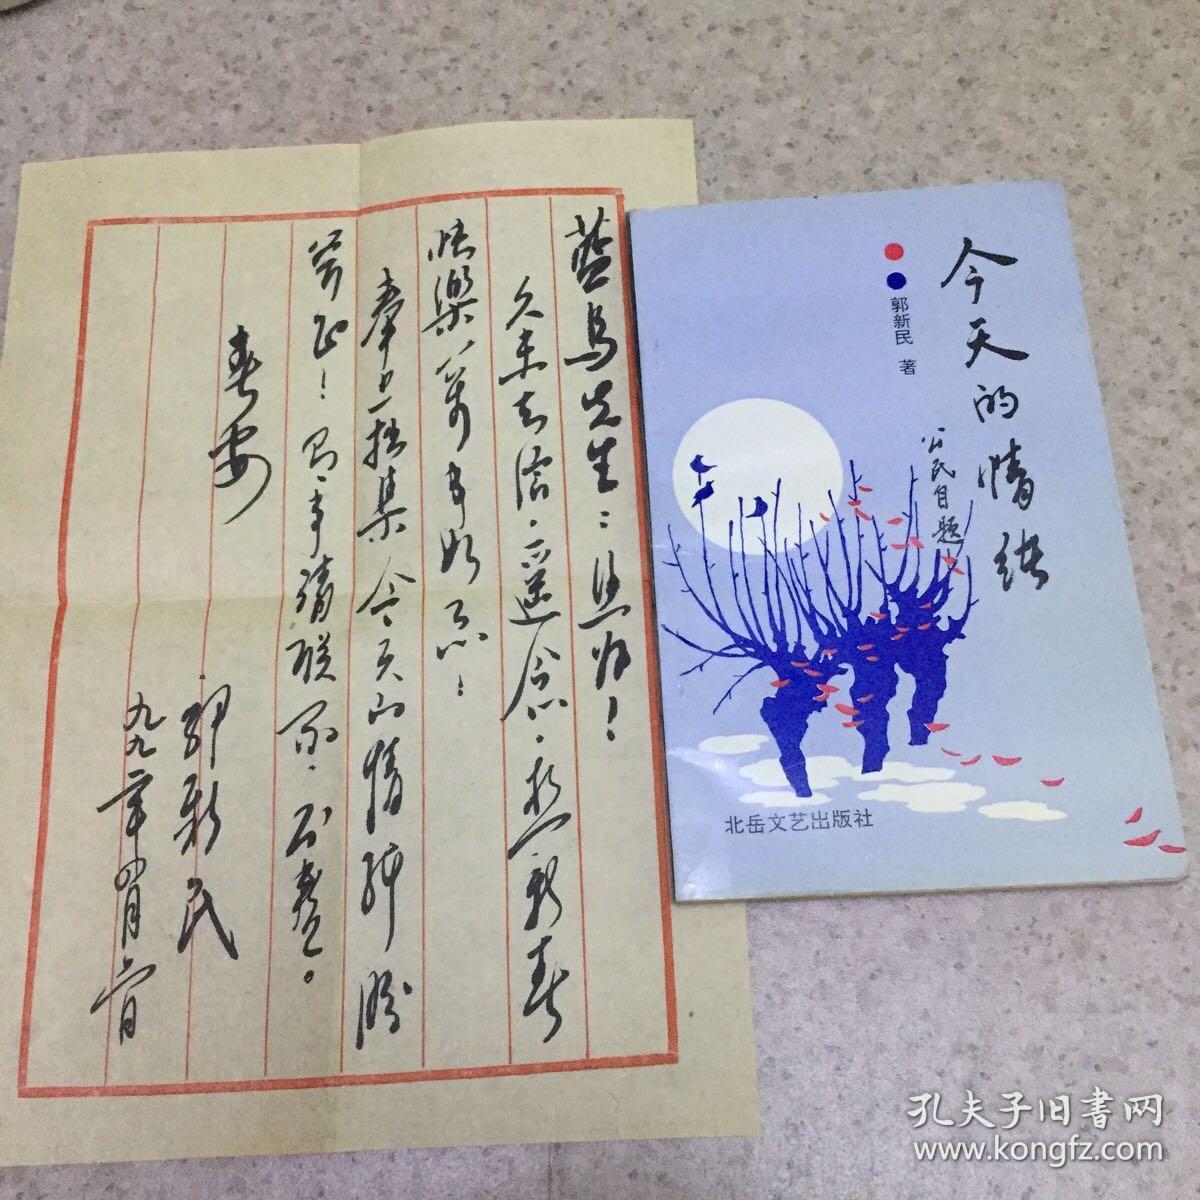 蓝鸟先生：您好！
久未去信，遥念，想新春
快樂，万事如意！
奉上拙集今天的情绪盼
笑正！有事请联系，不尽。
春安
郭新民
九九年四月
今天的情绪
公民自题
郭新民 著
北岳文艺出版社
孔夫子旧書网
www.kongfz.com